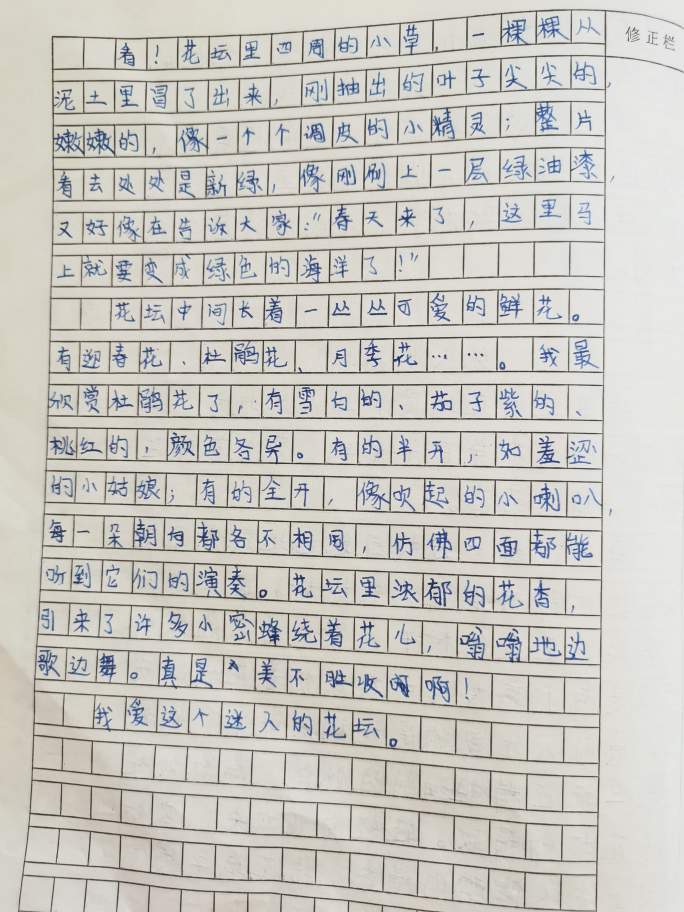 修正栏
看！花坛里四周的小草，一棵棵从
泥土里冒了出来，刚抽出的叶子尖尖的，
嫩嫩的，像一个个调皮的小精灵；整片
看去处处是新绿，像刚刷上一层绿油漆，
又好像在告诉大家：“春天来了，这里马
上就要变成绿色的海洋了！”
花坛中间长着一丛丛可爱的鲜花。
有迎春花、杜鹃花、月季花……。我最
欣赏杜鹃花了，有雪白的、茄子紫的、
桃红的，颜色各异。有的半开，如羞涩
的小姑娘；有的全开，像吹起的小喇叭，
每一朵朝向都各不相同，仿佛四面都能
听到它们的演奏。花坛里浓郁的花香，
引来了许多小密蜂绕着花儿，嗡嗡地边
歌边舞。真是美不胜收啊！
我爱这个迷人的花坛。